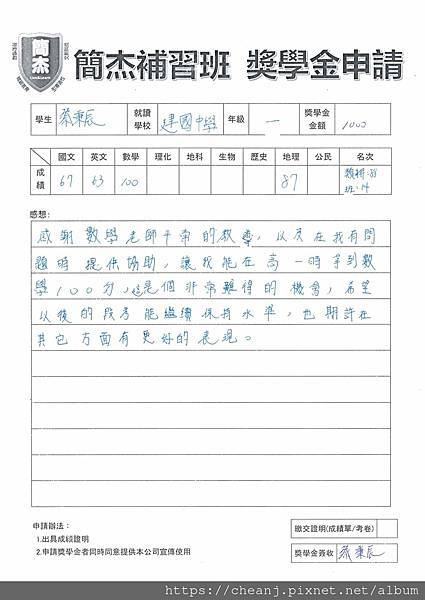 簡杰
簡杰補習班 獎學金申請
學生 蔡秉辰 就讀學校 建國中學 年級 一 獎學金金額 1000
國文 英文 數學 理化 地科 生物 歷史 地理 公民 名次
成績 67 63 100 87 類排:88 班:14
感想:
感謝數學老師平常的教導,以及在我有問
題時提供協助,讓我能在高一時拿到數
學100分,這是個非常難得的機會,希望
以後的段考能繼續保持水準,也期許在
其它方面有更好的表現。
申請辦法:
1.出具成績證明
2.申請獎學金者同時同意提供本公司宣傳使用
繳交證明(成績單/考卷)
獎學金簽收 蔡秉辰
https://cheanj.pixnet.net/album